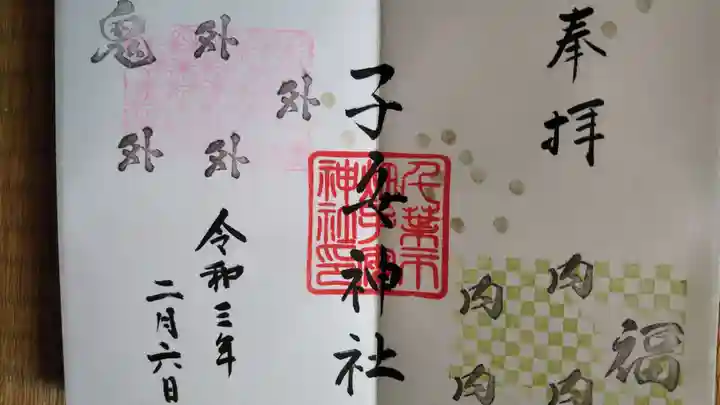 奉拝
福
内
内
内
内
子安神社
千葉市
神社印
外
外
外
外
鬼
令和三年
二月六日